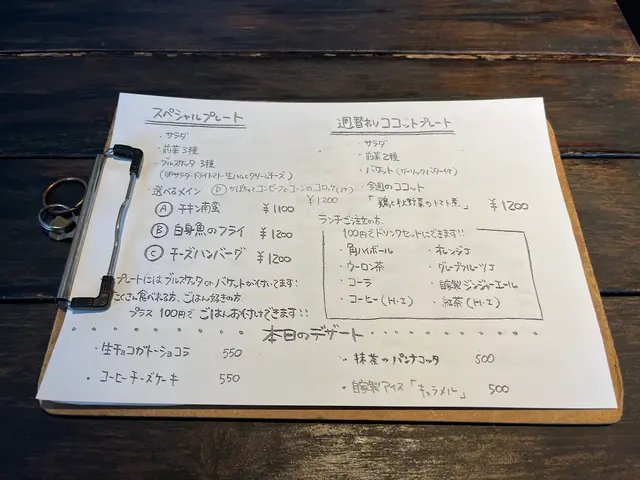 スペシャルプレート
・サラダ
・前菜3種
・ブルスケッタ 3種
(卵サラダ・ドライトマト・生ハムとクリームチーズ)
・選べるメイン Ⓓ かぼちゃとコンビーフとコーンのコロッケ ¥1200
Ⓐ チキン南蛮 ¥1100
Ⓑ 白身魚のフライ ¥1200
Ⓒ チーズハンバーグ ¥1200
プレートにはブルスケッタorバケットが付いてます!
たくさん食べれる方、ごはん好きの方
プラス100円でごはんお付けできます!!
週替わりココットプレート
・サラダ
・前菜2種
・バケット(ガーリックバター付)
・今週のココット
「鶏と秋野菜のトマト煮」 ¥1200
ランチご注文の方
100円でドリンクセットにできます!!
・角ハイボール ・オレンジJ
・ウーロン茶 ・グレープフルーツJ
・コーラ ・自家製ジンジャーエール
・コーヒー(H・I) ・紅茶(H・I)
本日のデザート
・生チョコガトーショコラ 550
・抹茶のパンナコッタ 500
・コーヒーチーズケーキ 550
・自家製アイス「キャラメル」 500